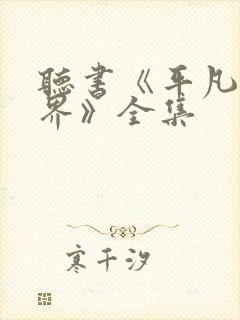 聽書《平凡
界》全集
寒千汐